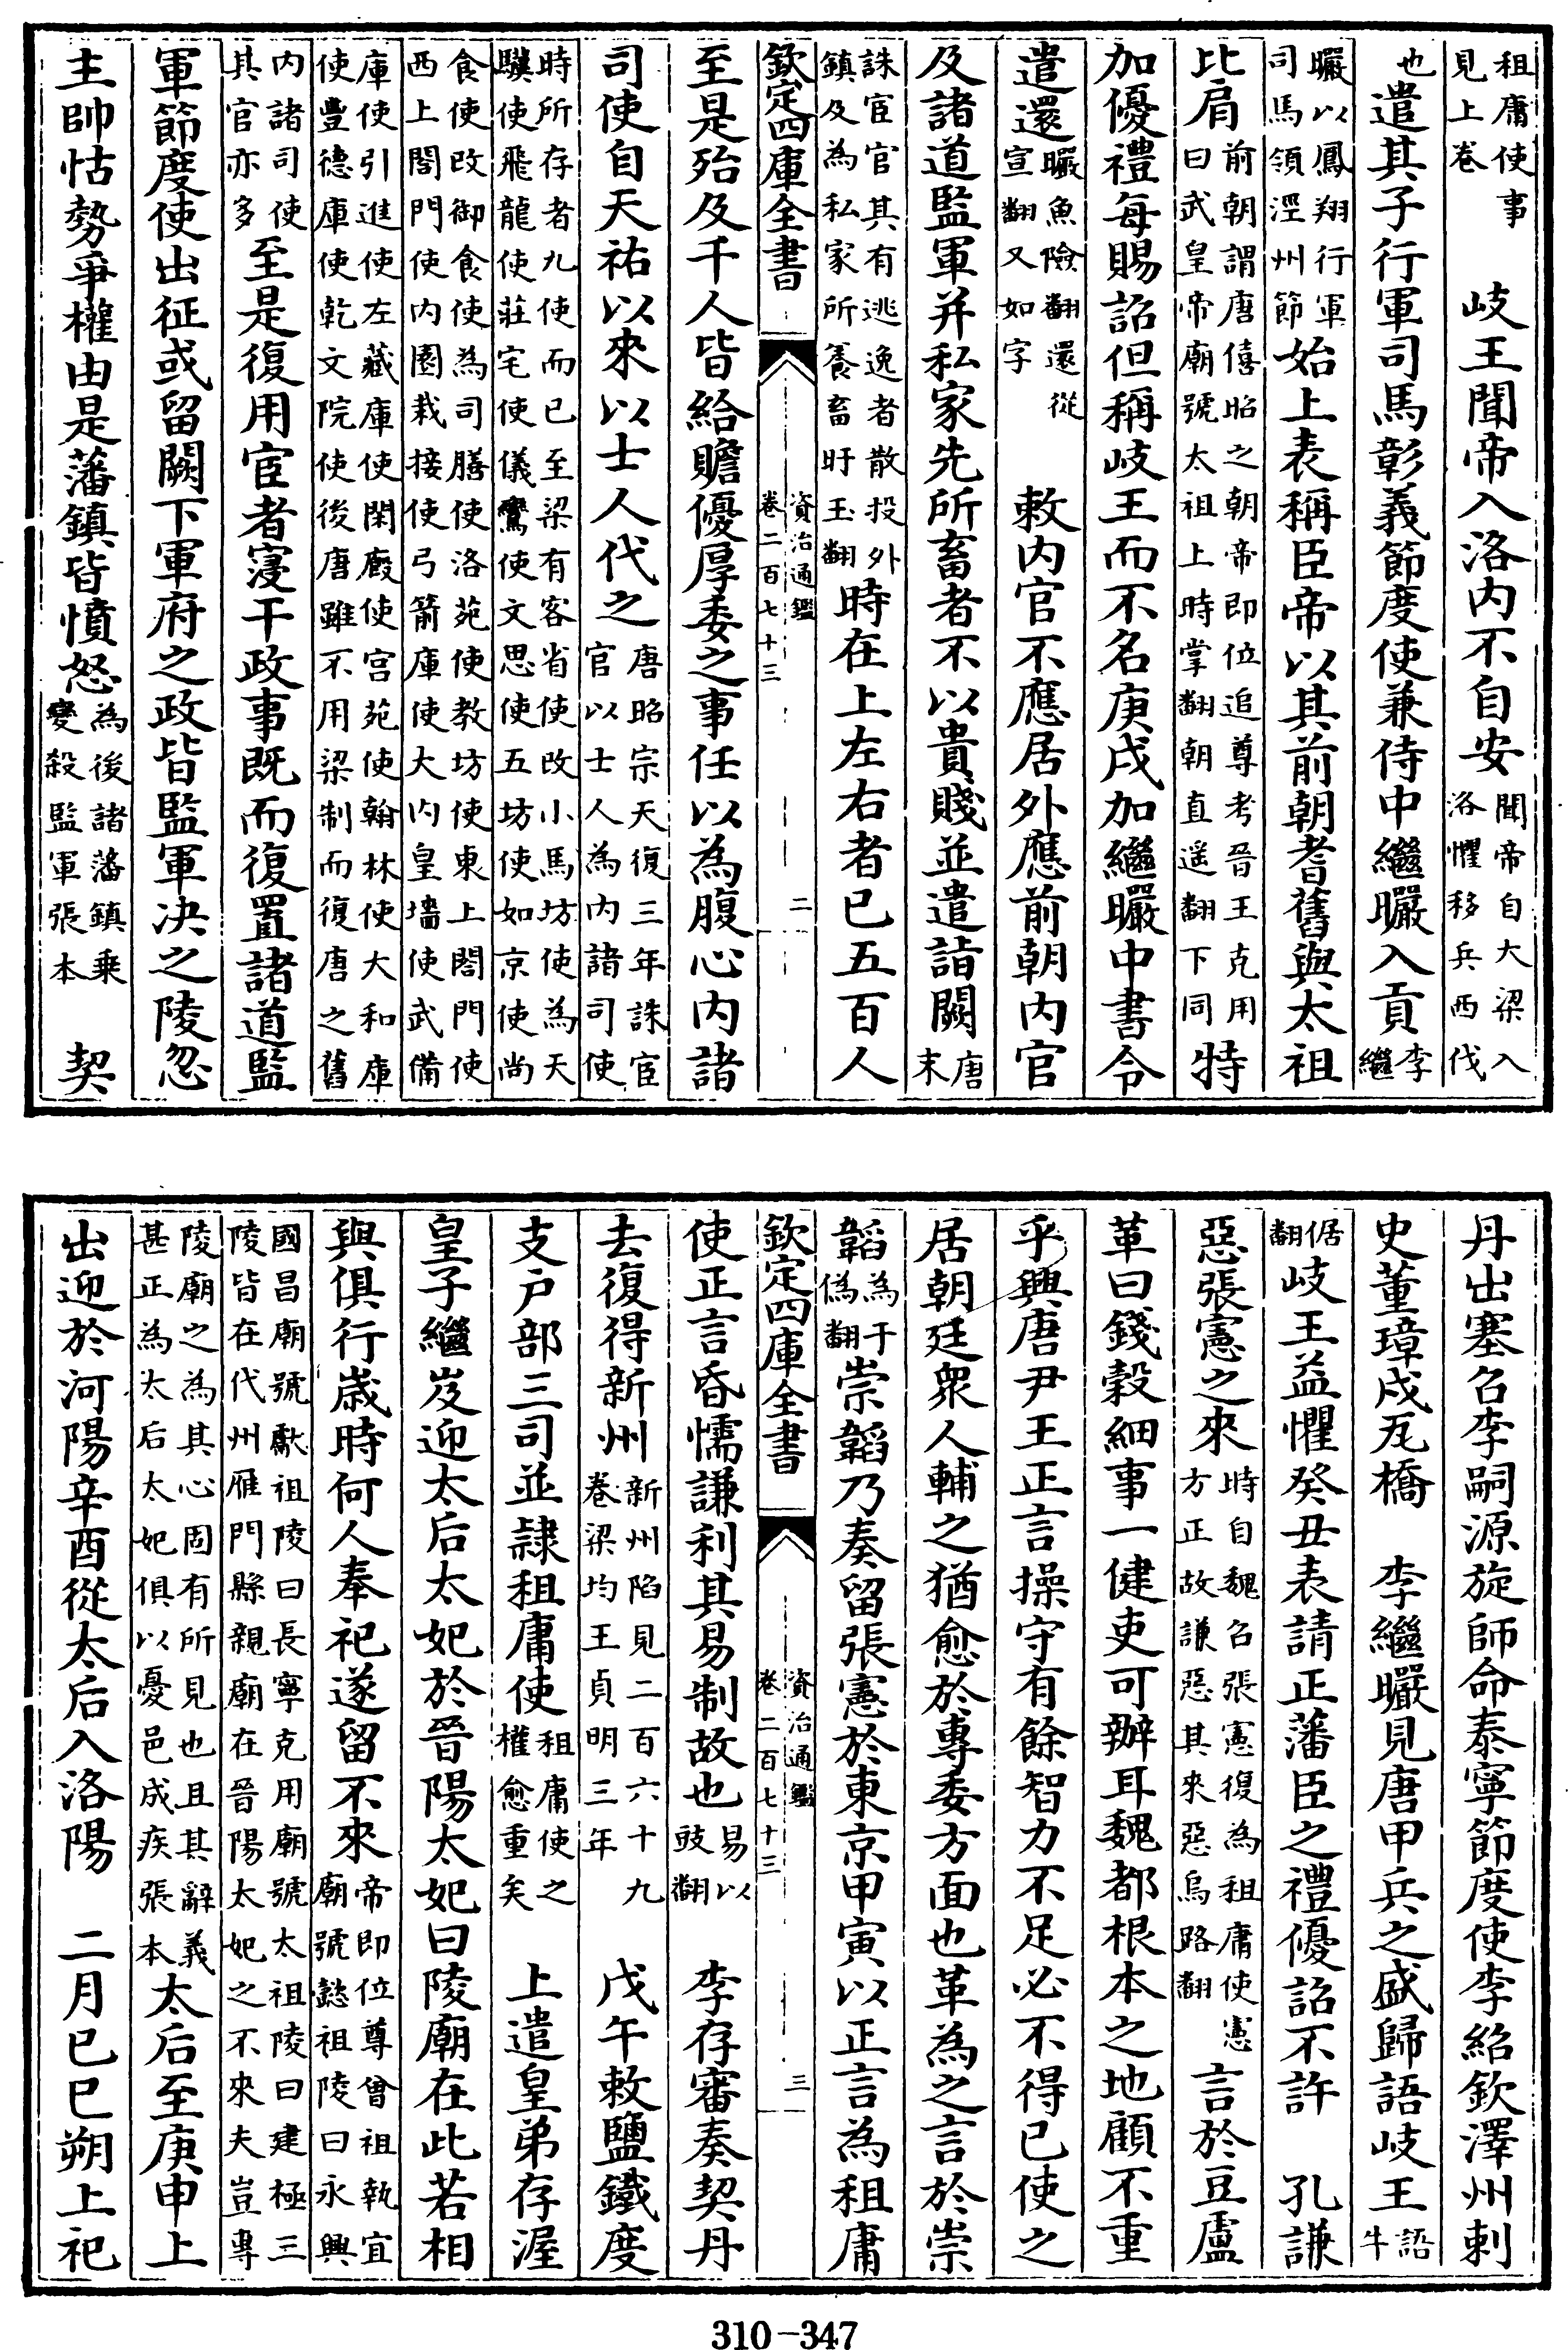 租庸使事見上卷　岐王聞帝入洛内不自安聞帝自大梁入洛懼移兵西伐
也遣其子行軍司馬彰義節度使兼侍中繼曮入貢李繼
曮以鳳翔行軍司馬領涇州節始上表稱臣帝以其前朝耆舊與太祖
比肩前朝謂唐僖昭之朝帝即位追尊考晉王克用曰武皇帝廟號太祖上時掌翻朝直遥翻下同特
加優禮每賜詔但稱岐王而不名庚戌加繼曮中書令
遣還曮魚險翻還從宣翻又如字　敕内官不應居外應前朝内官
及諸道監軍并私家先所畜者不以貴賤並遣詣闕唐末
誅宦官其有逃逸者散投外鎮及為私家所養畜旴玉翻時在上左右者已五百人
欽定四庫全書　資治通鑑卷二百七十三　二
至是殆及千人皆給贍優厚委之事任以為腹心内諸
司使自天祐以來以士人代之唐昭宗天復三年誅宦官以士人為内諸司使
時所存者九使而已至梁有客省使改小馬坊使為天驥使飛龍使莊宅使儀鸞使文思使五坊使如京使尚
食使改御食使為司膳使洛苑使教坊使東上閤門使西上閤門使内園栽接使弓箭庫使大内皇墻使武備
庫使引進使左藏庫使閑廐使宫苑使翰林使大和庫使豐德庫使乾文院使後唐雖不用梁制而復唐之舊
内諸司使其官亦多至是復用宦者寖干政事既而復置諸道監
軍節度使出征或留闕下軍府之政皆監軍決之陵忽
主帥怙勢爭權由是藩鎮皆憤怒為後諸藩鎮乗變殺監軍張本　契
丹出塞召李嗣源旋師命泰寧節度使李紹欽澤州刺
史董璋戍瓦橋　李繼曮見唐甲兵之盛歸語岐王語牛
倨翻岐王益懼癸丑表請正藩臣之禮優詔不許　孔謙
惡張憲之來時自魏召張憲復為租庸使憲方正故謙惡其來惡烏路翻言於豆盧
革曰錢穀細事一健吏可辦耳魏都根本之地顧不重
乎興唐尹王正言操守有餘智力不足必不得已使之
居朝廷衆人輔之猶愈於專委方面也革為之言於崇
韜為于偽翻崇韜乃奏留張憲於東京甲寅以正言為租庸
欽定四庫全書　資治通鑑卷二百七十三　三
使正言昏懦謙利其易制故也易以豉翻　李存審奏契丹
去復得新州新州陷見二百六十九卷梁均王貞明三年　戊午敕鹽鐵度
支户部三司並隸租庸使租庸使之權愈重矣　上遣皇弟存渥
皇子繼岌迎太后太妃於晉陽太妃曰陵廟在此若相
與俱行歲時何人奉祀遂留不來帝即位尊曾祖執宜廟號懿祖陵曰永興
國昌廟號獻祖陵曰長寧克用廟號太祖陵曰建極三陵皆在代州雁門縣親廟在晉陽太妃之不來夫豈專
陵廟之為其心固有所見也且其辭義甚正為太后太妃俱以憂邑成疾張本太后至庚申上
出迎於河陽辛酉從太后入洛陽　二月己巳朔上祀
310-347